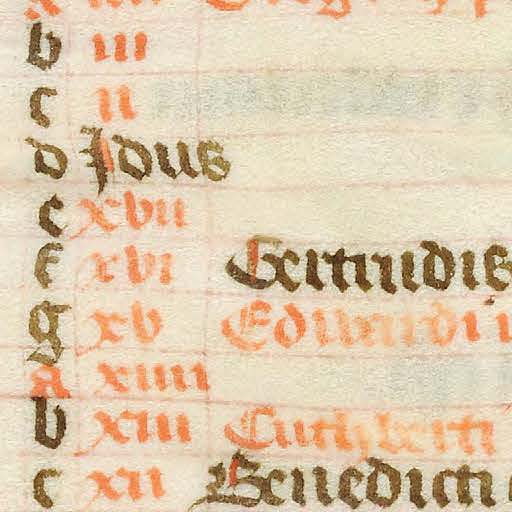 b iii
c ii
d Idus
e xvii
f xvi Gertrudis
g xv Edwardi
A xiiii
b xiii Cuthberti
c xii Benedicti